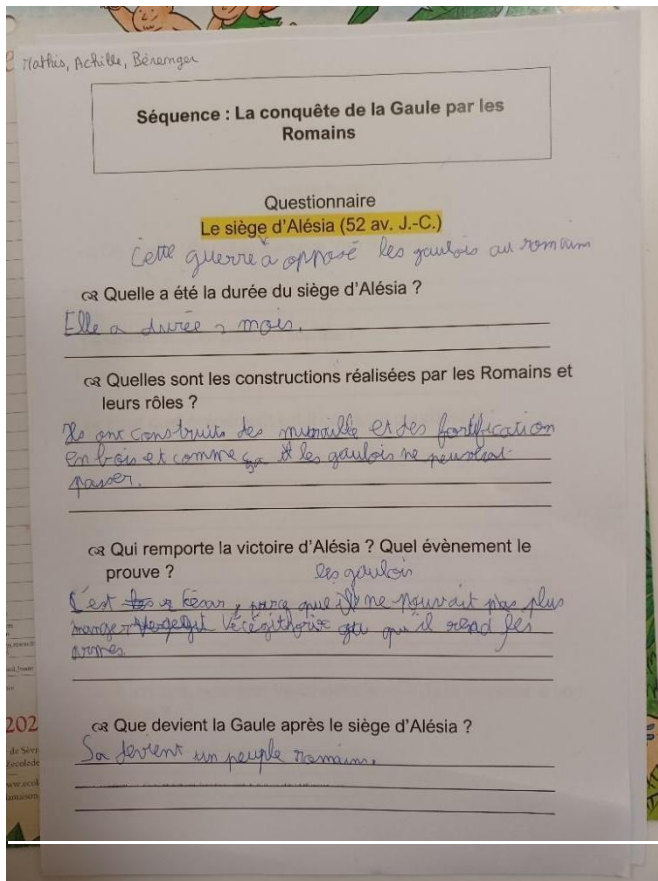 Mathis, Achille, Bérenger
Séquence : La conquête de la Gaule par les
Romains
Questionnaire
Le siège d'Alésia (52 av. J.-C.)
Cette guerre a opposé les gaulois au romains
Quelle a été la durée du siège d'Alésia ?
Elle a durée 2 mois.
Quelles sont les constructions réalisées par les Romains et
leurs rôles ?
Ils ont construits des muraille et des fortification
en bois et comme ça les gaulois ne peuvent
passer.
Qui remporte la victoire d'Alésia ? Quel évènement le
prouve ?
les gaulois
C'est késar, parce que il ne pouvait pas plus
manger Vécégithorix qu'il rend les
armes.
202
de Sèvr
Que devient la Gaule après le siège d'Alésia ?
Sa devient un peuple romains.